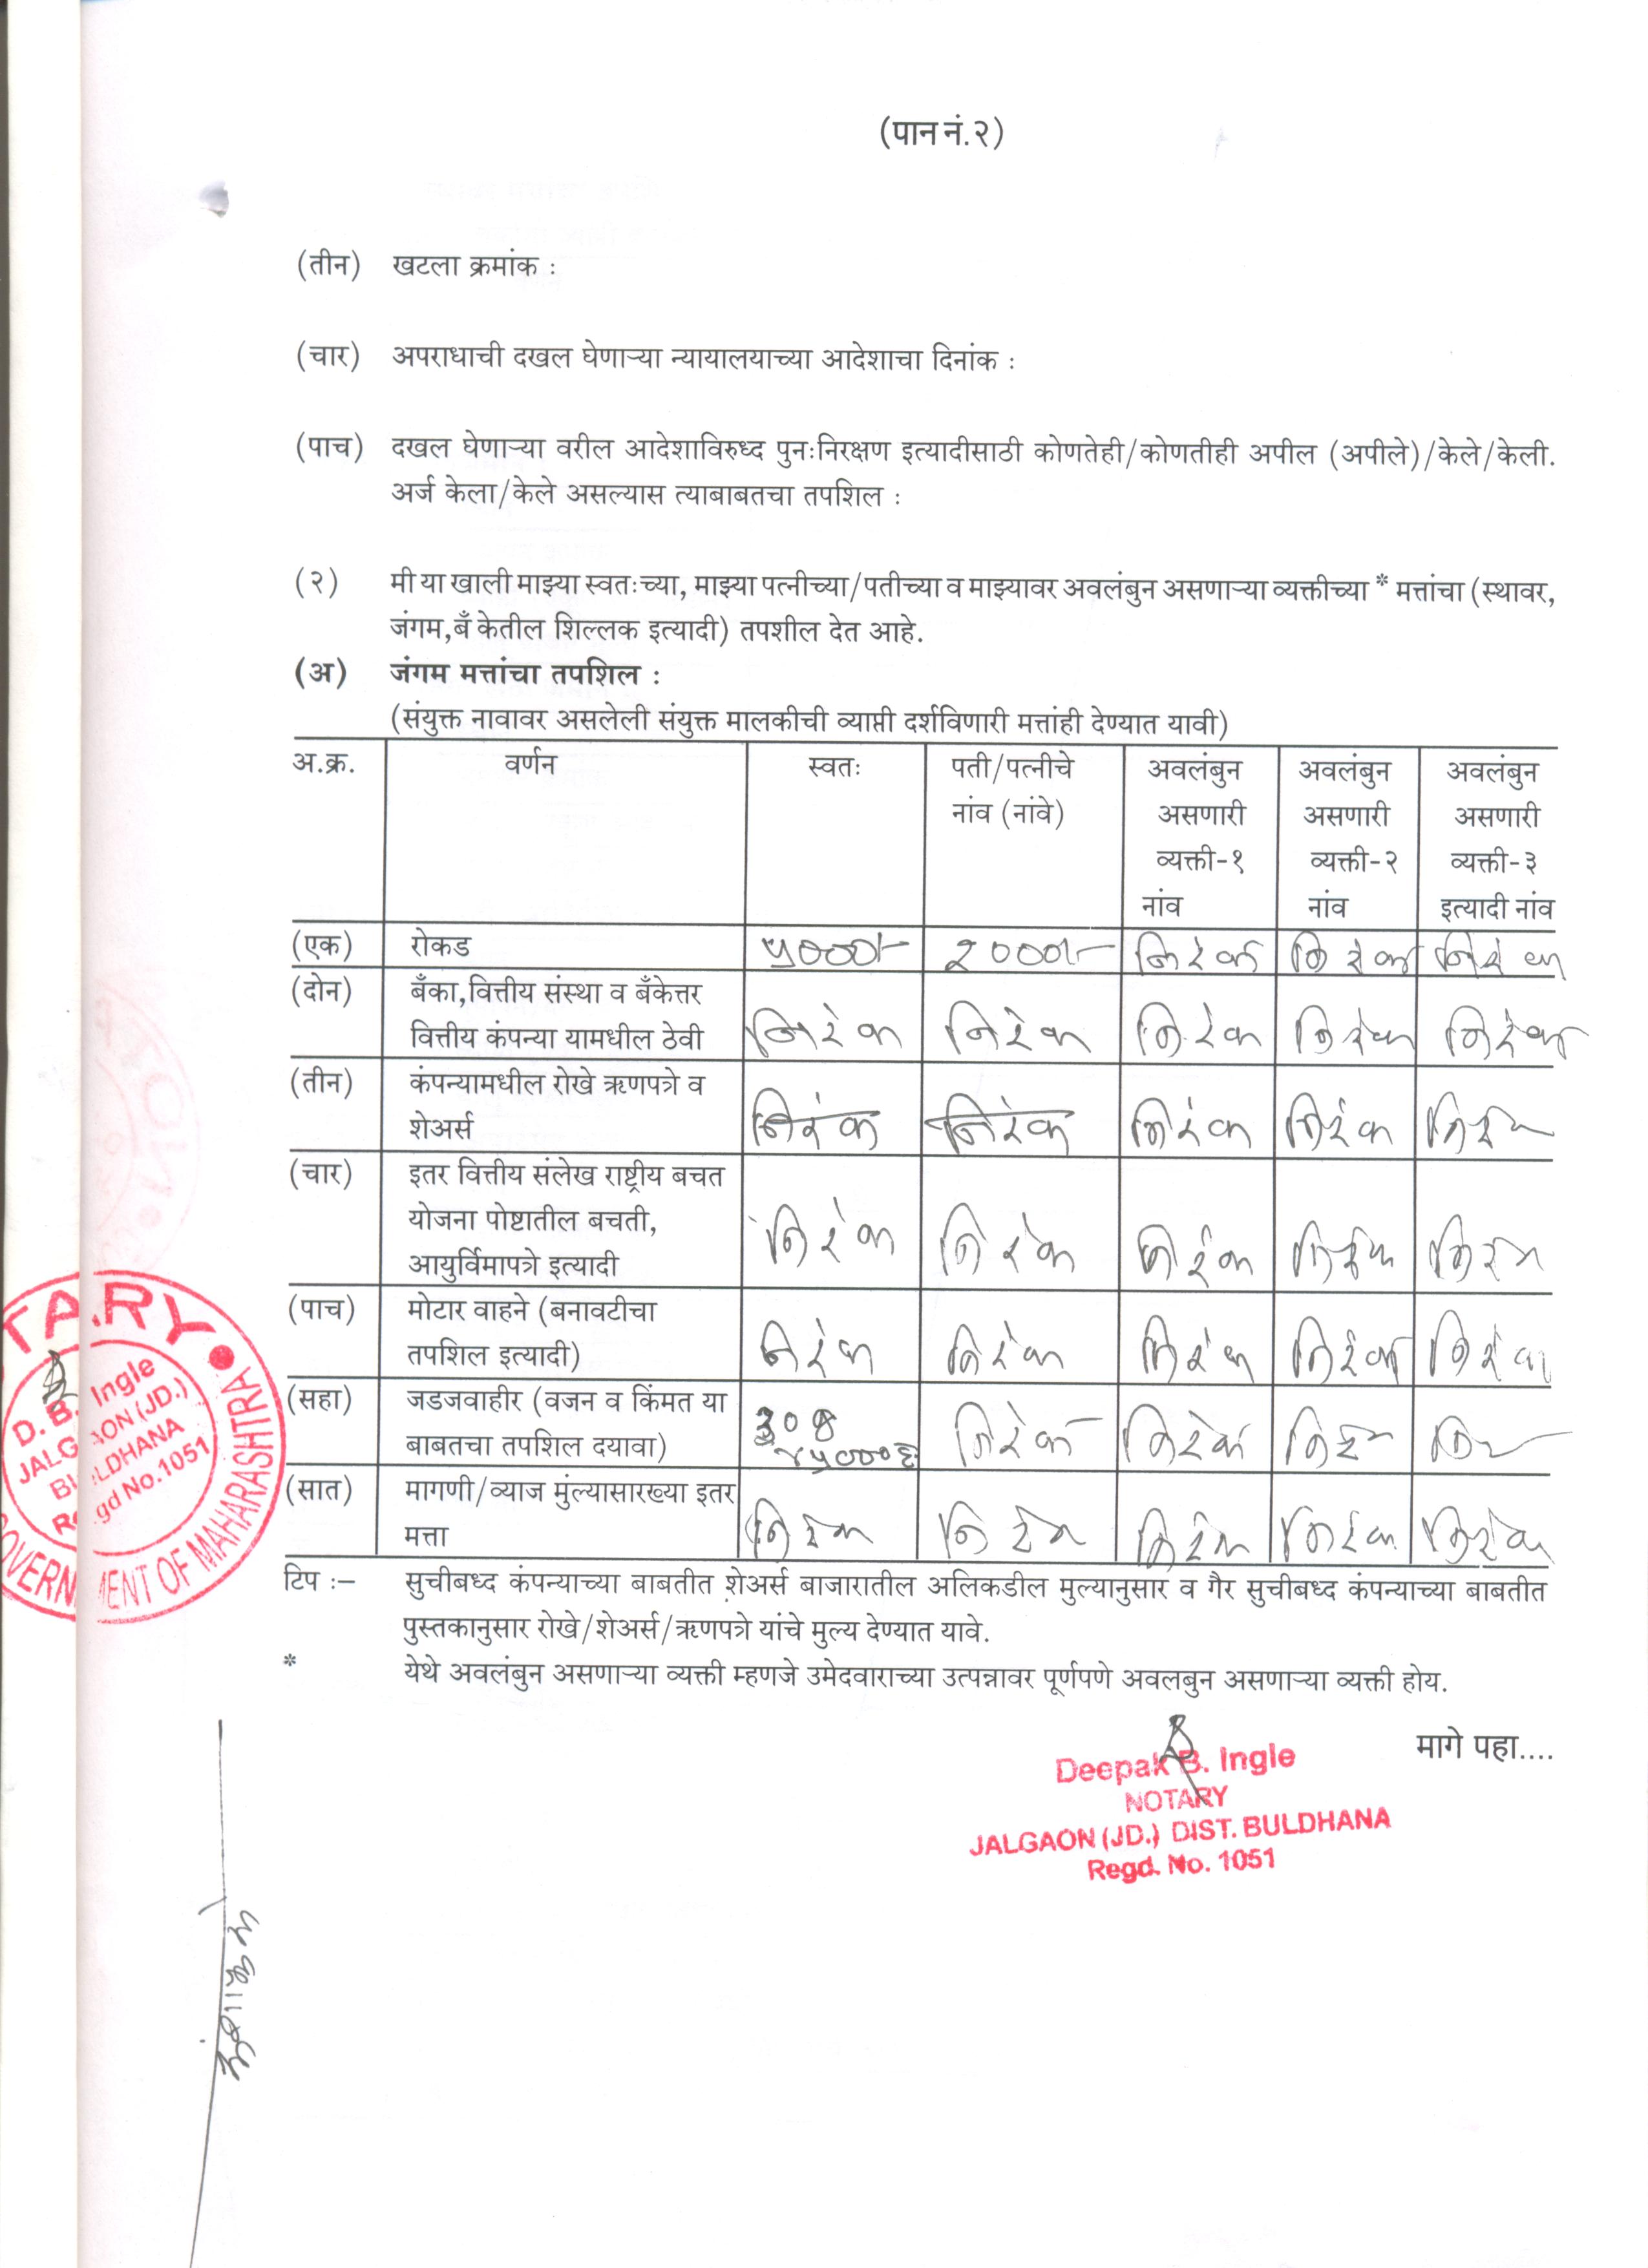 (पान नं.२)
(तीन) खटला क्रमांक :
(चार) अपराधाची दखल घेणाऱ्या न्यायालयाच्या आदेशाचा दिनांक :
(पाच) दखल घेणाऱ्या वरील आदेशाविरुध्द पुनःनिरक्षण इत्यादीसाठी कोणतेही/कोणतीही अपील (अपीले)/केले/केली.
अर्ज केला/केले असल्यास त्याबाबतचा तपशिल :
(२) मी या खाली माझ्या स्वतःच्या, माझ्या पत्नीच्या/पतीच्या व माझ्यावर अवलंबुन असणाऱ्या व्यक्तीच्या * मत्तांचा (स्थावर,
जंगम,बँकेतील शिल्लक इत्यादी) तपशील देत आहे.
(अ) जंगम मत्तांचा तपशिल :
(संयुक्त नावावर असलेली संयुक्त मालकीची व्याप्ती दर्शविणारी मत्तांही देण्यात यावी)
अ.क्र. वर्णन स्वतः पती/पत्नीचे अवलंबुन अवलंबुन अवलंबुन
नांव (नांवे) असणारी असणारी असणारी
व्यक्ती-१ व्यक्ती-२ व्यक्ती-३
नांव नांव इत्यादी नांव
(एक) रोकड ५०००/- २०००/- निरंक निरंक निरंक
(दोन) बँका,वित्तीय संस्था व बँकेत्तर
वित्तीय कंपन्या यामधील ठेवी निरंक निरंक निरंक निरंक निरंक
(तीन) कंपन्यामधील रोखे ऋणपत्रे व
शेअर्स निरंक निरंक निरंक निरंक निरंक
(चार) इतर वित्तीय संलेख राष्ट्रीय बचत
योजना पोष्टातील बचती,
आयुर्विमापत्रे इत्यादी निरंक निरंक निरंक निरंक निरंक
(पाच) मोटार वाहने (बनावटीचा
तपशिल इत्यादी) निरंक निरंक निरंक निरंक निरंक
(सहा) जडजवाहीर (वजन व किंमत या
बाबतचा तपशिल दयावा) निरंक निरंक निरंक
(सात) मागणी/व्याज मुंल्यासारख्या इतर
मत्ता निरंक निरंक निरंक निरंक निरंक
टिप :– सुचीबध्द कंपन्याच्या बाबतीत शेअर्स बाजारातील अलिकडील मुल्यानुसार व गैर सुचीबध्द कंपन्याच्या बाबतीत
पुस्तकानुसार रोखे/शेअर्स/ऋणपत्रे यांचे मुल्य देण्यात यावे.
* येथे अवलंबुन असणाऱ्या व्यक्ती म्हणजे उमेदवाराच्या उत्पन्नावर पूर्णपणे अवलबुन असणाऱ्या व्यक्ती होय.
मागे पहा....
Deepak B. Ingle
NOTARY
JALGAON (JD.) DIST. BULDHANA
Regd. No. 1051
TARY
D. B. Ingle
JALGAON (JD.)
BULDHANA
Regd No.1051
GOVERNMENT OF MAHARASHTRA